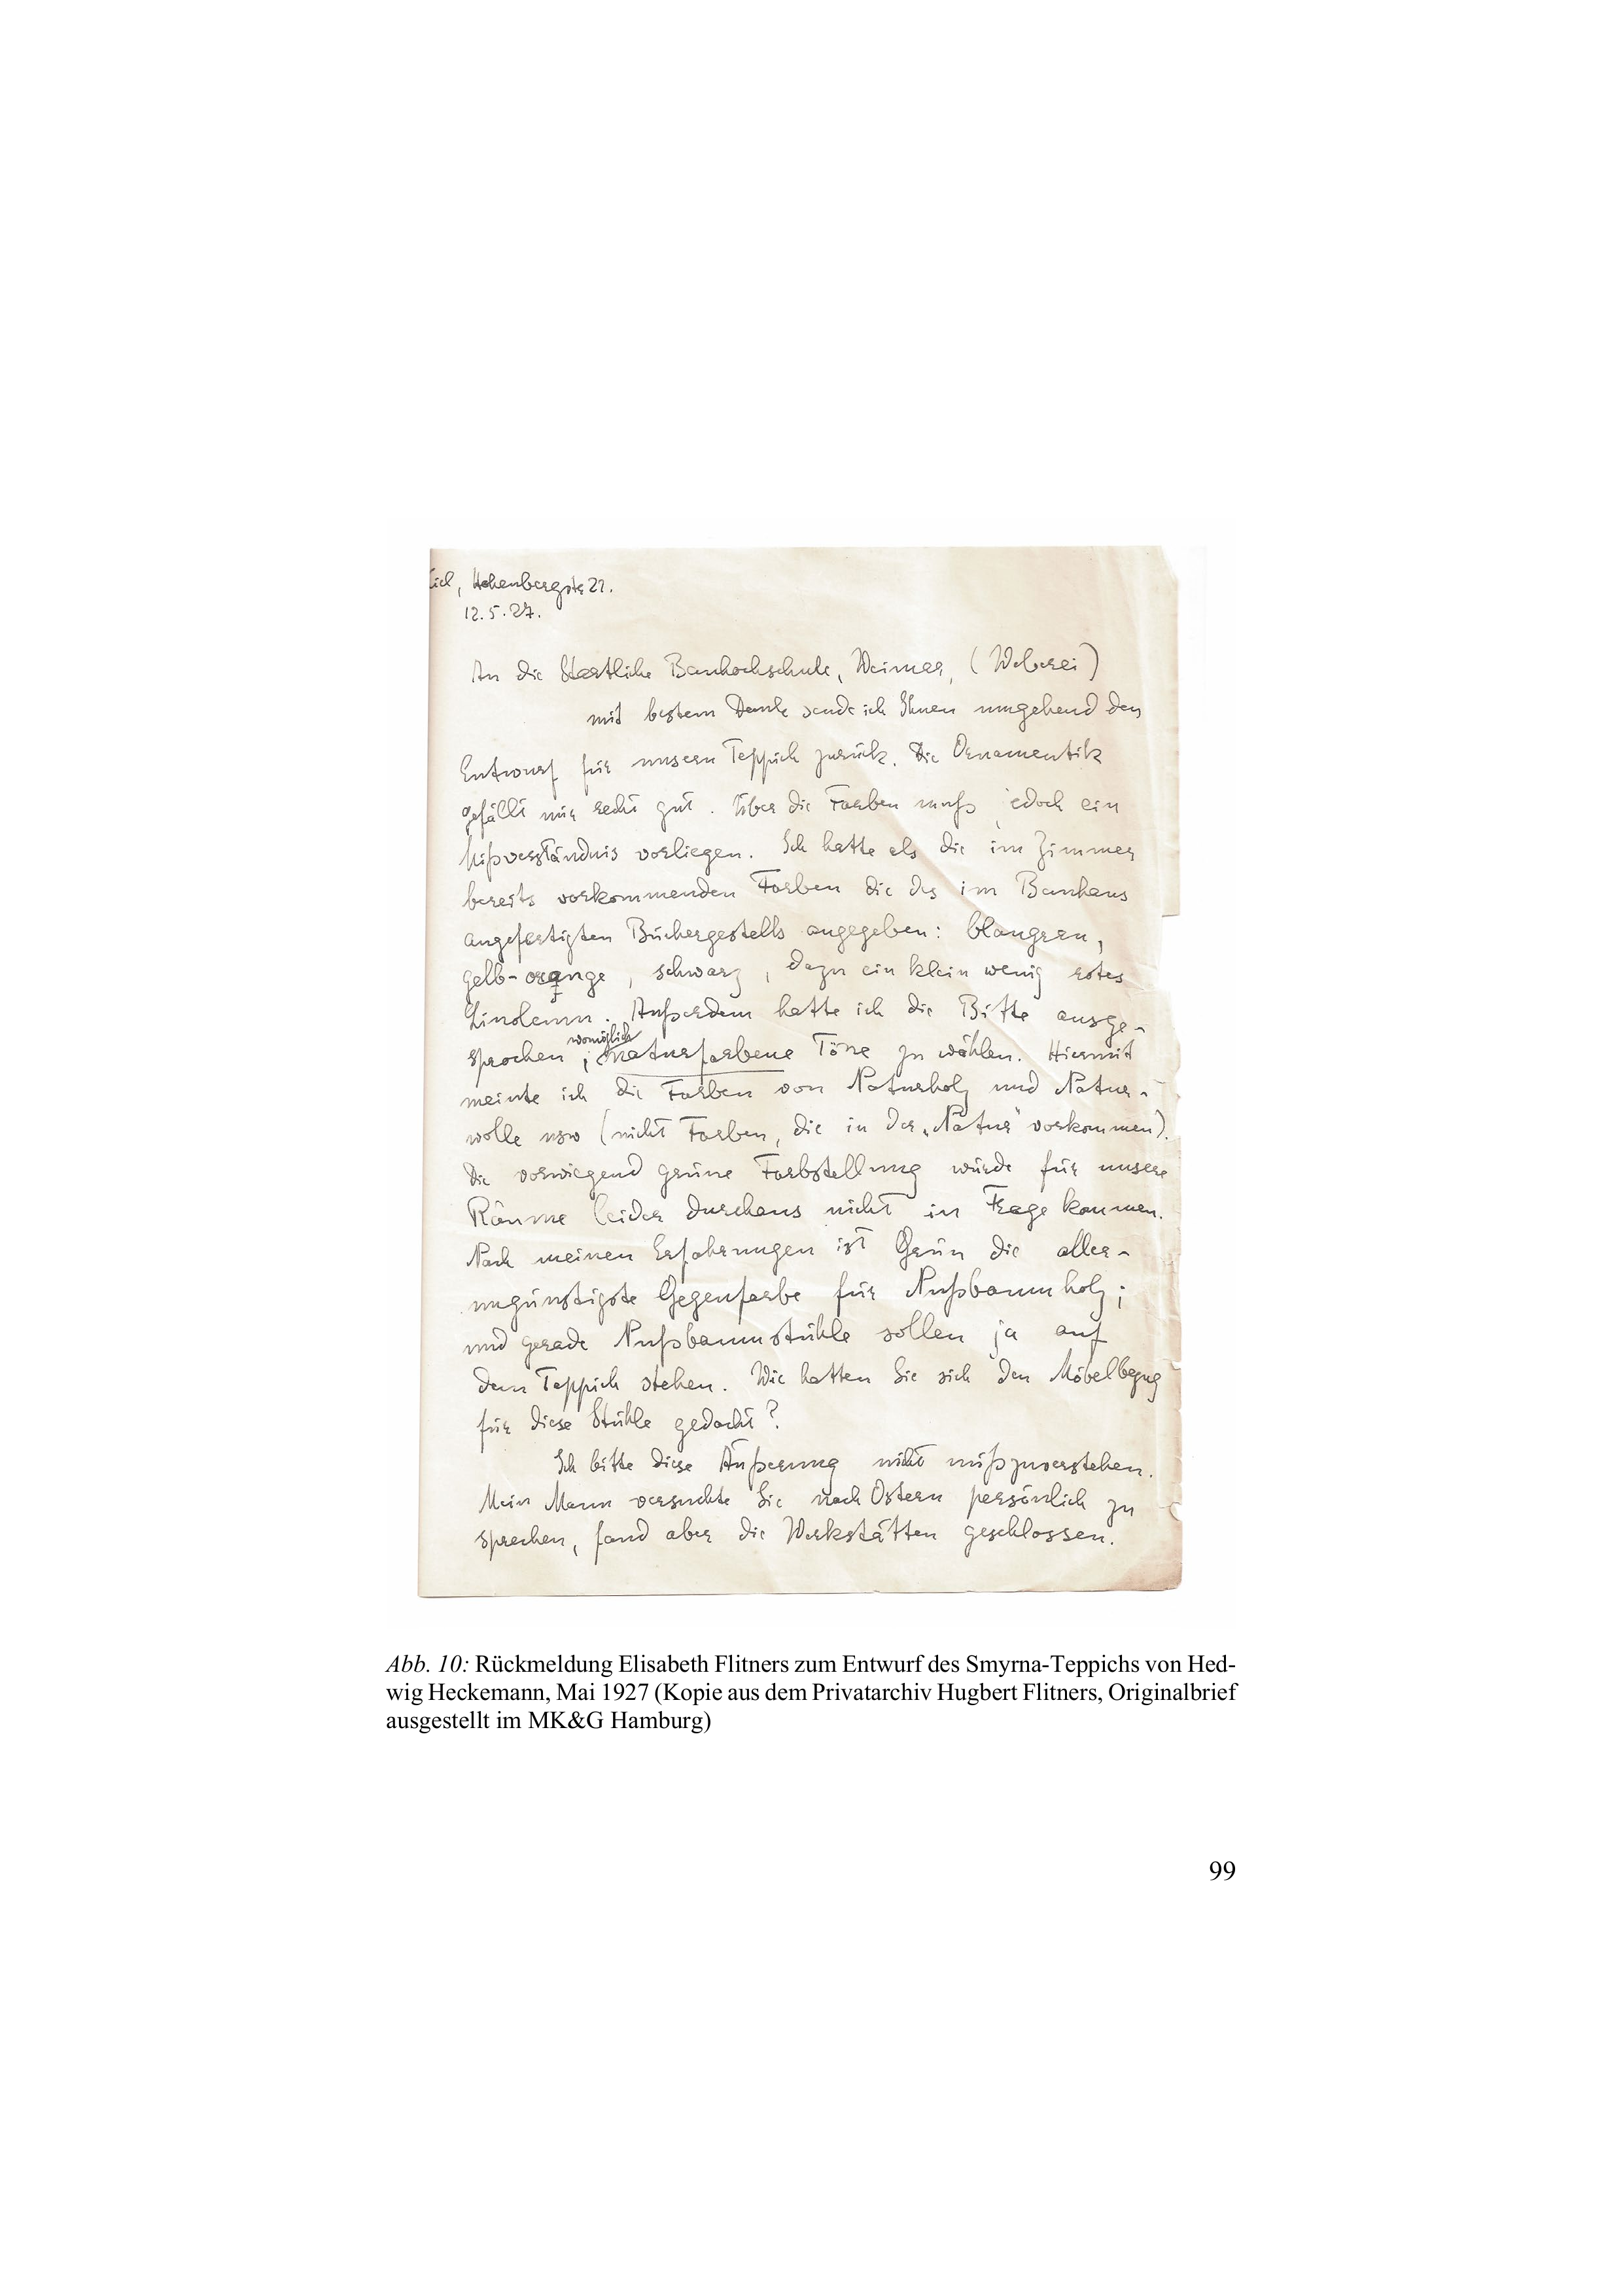 iel, Hohenbergstr 21.
12.5.27.
An die Staatliche Bauhochschule, Weimar, (Weberei)
mit bestem Dank sende ich Ihnen umgehend den
Entwurf für unsern Teppich zurück. Die Ornamentik
gefällt mir recht gut. Über die Farben muß jedoch ein
Mißverständnis vorliegen. Ich hatte als die im Zimmer
bereits vorkommenden Farben die des im Bauhaus
angefertigten Büchergestells angegeben: blaugrau,
gelb-orange, schwarz, dazu ein klein wenig rotes
Linoleum. Außerdem hatte ich die Bitte ausge-
womöglich
sprochen, naturfarbene Töne zu wählen. Hiermit
meinte ich die Farben von Naturholz und Natur-
wolle usw (nicht Farben, die in der „Natur" vorkommen).
Die vorwiegend grüne Farbstellung würde für unsere
Räume leider durchaus nicht in Frage kommen.
Nach meinen Erfahrungen ist Grün die aller-
ungünstigste Gegenfarbe für Nußbaumholz;
und gerade Nußbaumstühle sollen ja auf
dem Teppich stehen. Wie hatten Sie sich den Möbelbezug
für diese Stühle gedacht?
Ich bitte diese Äußerung nicht mißzuverstehen.
Mein Mann versuchte Sie nach Ostern persönlich zu
sprechen, fand aber die Werkstätten geschlossen.
Abb. 10: Rückmeldung Elisabeth Flitners zum Entwurf des Smyrna-Teppichs von Hed-
wig Heckemann, Mai 1927 (Kopie aus dem Privatarchiv Hugbert Flitners, Originalbrief
ausgestellt im MK&G Hamburg)
99